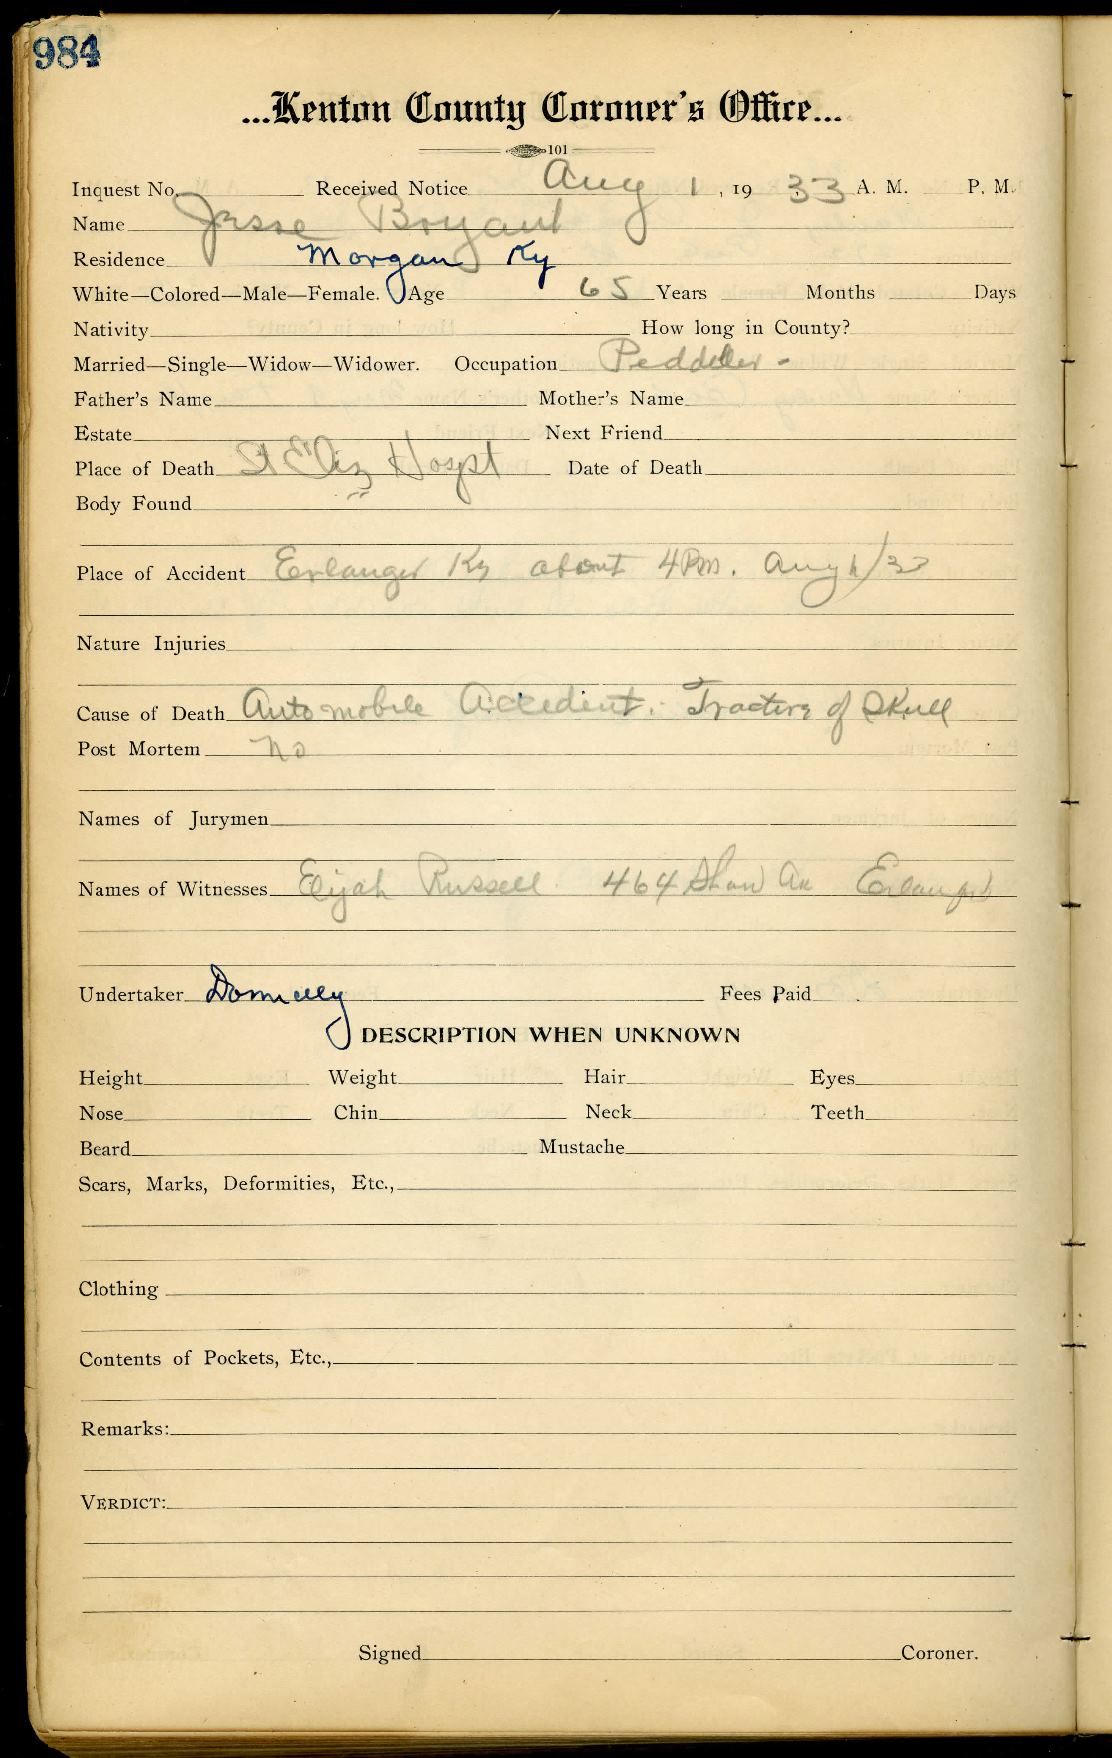 984
...Kenton County Coroner's Office...
101
Inquest No. Received Notice Aug 1, 1933 A. M. P. M.
Name Jesse Bryant
Residence Morgan Ky
White—Colored—Male—Female. Age 65 Years Months Days
Nativity How long in County?
Married—Single—Widow—Widower. Occupation Peddeler -
Father's Name Mother's Name
Estate Next Friend
Place of Death St Eliz Hospt Date of Death
Body Found
Place of Accident Erlanger Ky about 4 P.m. Aug 1/33
Nature Injuries
Cause of Death Automobile Accedient. Fracture of Skull
Post Mortem no
Names of Jurymen
Names of Witnesses Elijah Russell 464 Shaw Av
Undertaker Donnelly Fees Paid
DESCRIPTION WHEN UNKNOWN
Height Weight Hair Eyes
Nose Chin Neck Teeth
Beard Mustache
Scars, Marks, Deformities, Etc.,
Clothing
Contents of Pockets, Etc.,
Remarks:
VERDICT:
Signed Coroner.